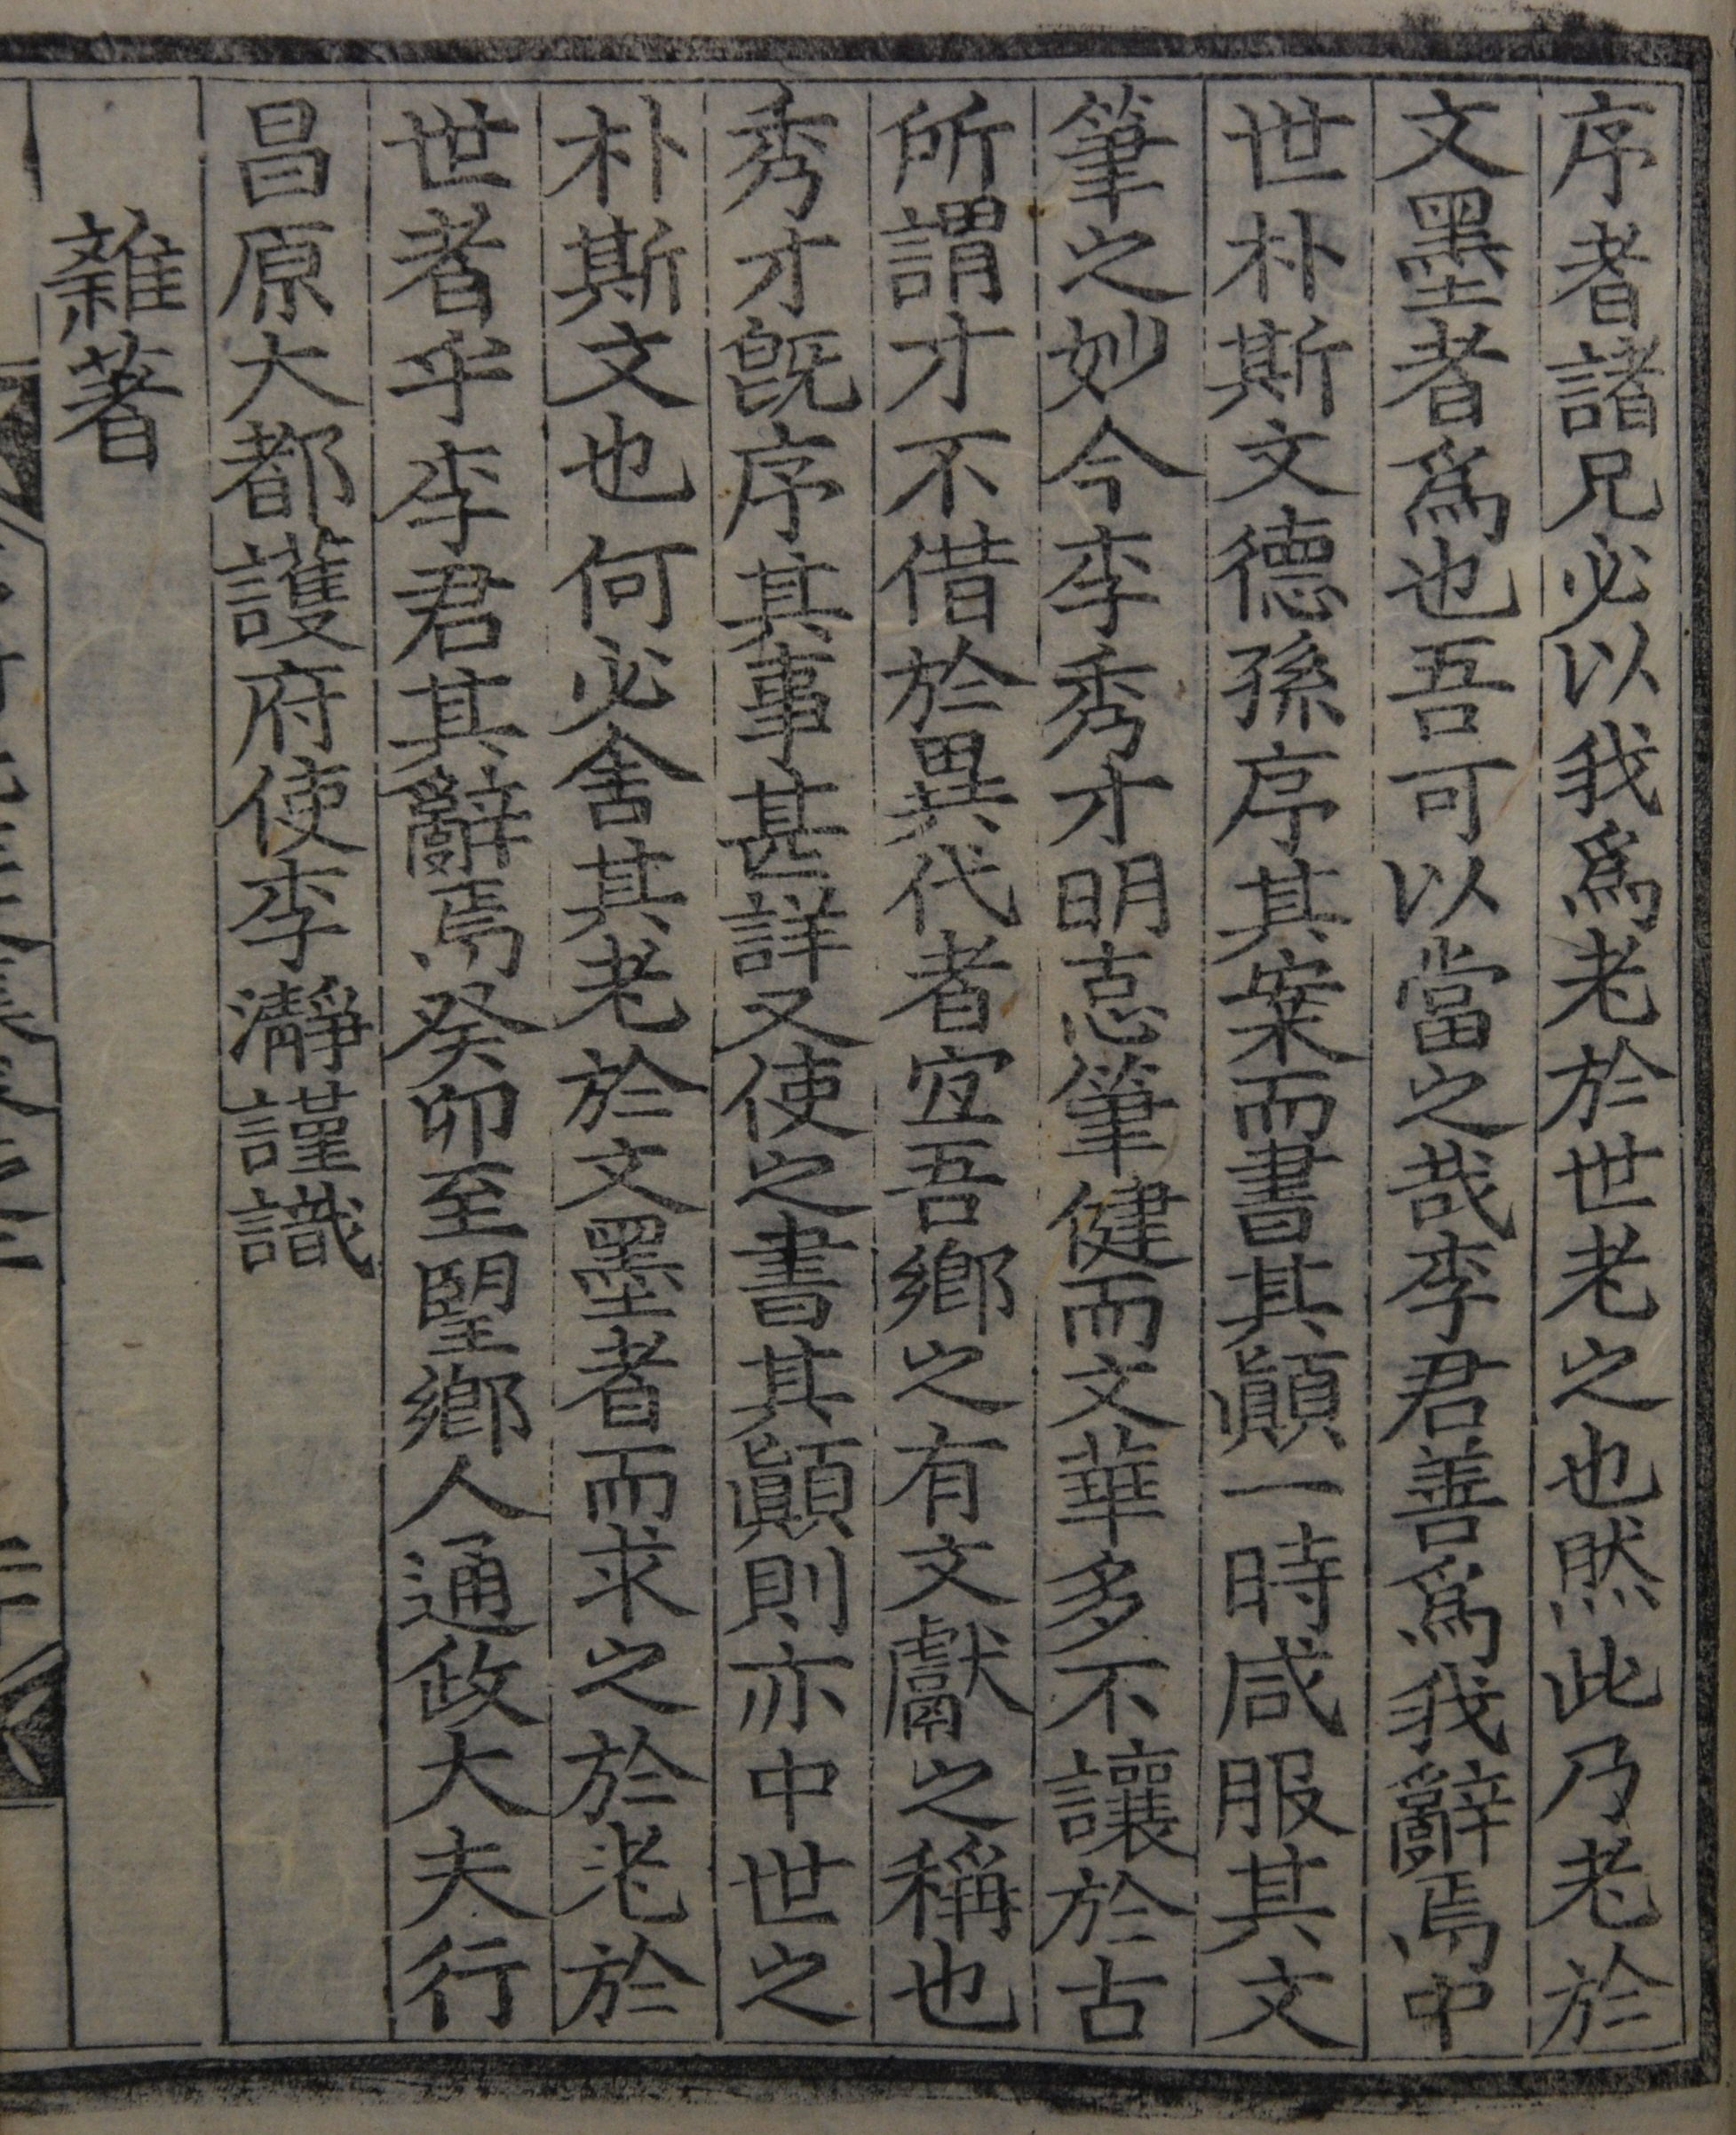 序者諸兄必以我爲老於世老之也然此乃老於
文墨者爲也吾可以當之哉李君善爲我辭焉中
世朴斯文德孫序其案而書其顚一時咸服其文
筆之妙今李秀才明志筆健而文華多不讓於古
所謂才不借於異代者宜吾鄕之有文獻之稱也
秀才旣序其事甚詳又使之書其顚則亦中世之
朴斯文也何必舍其老於文墨者而求之於老於
世者乎李君其辭焉癸卯至朢鄕人通政大夫行
昌原大都護府使李瀞謹識
雜著